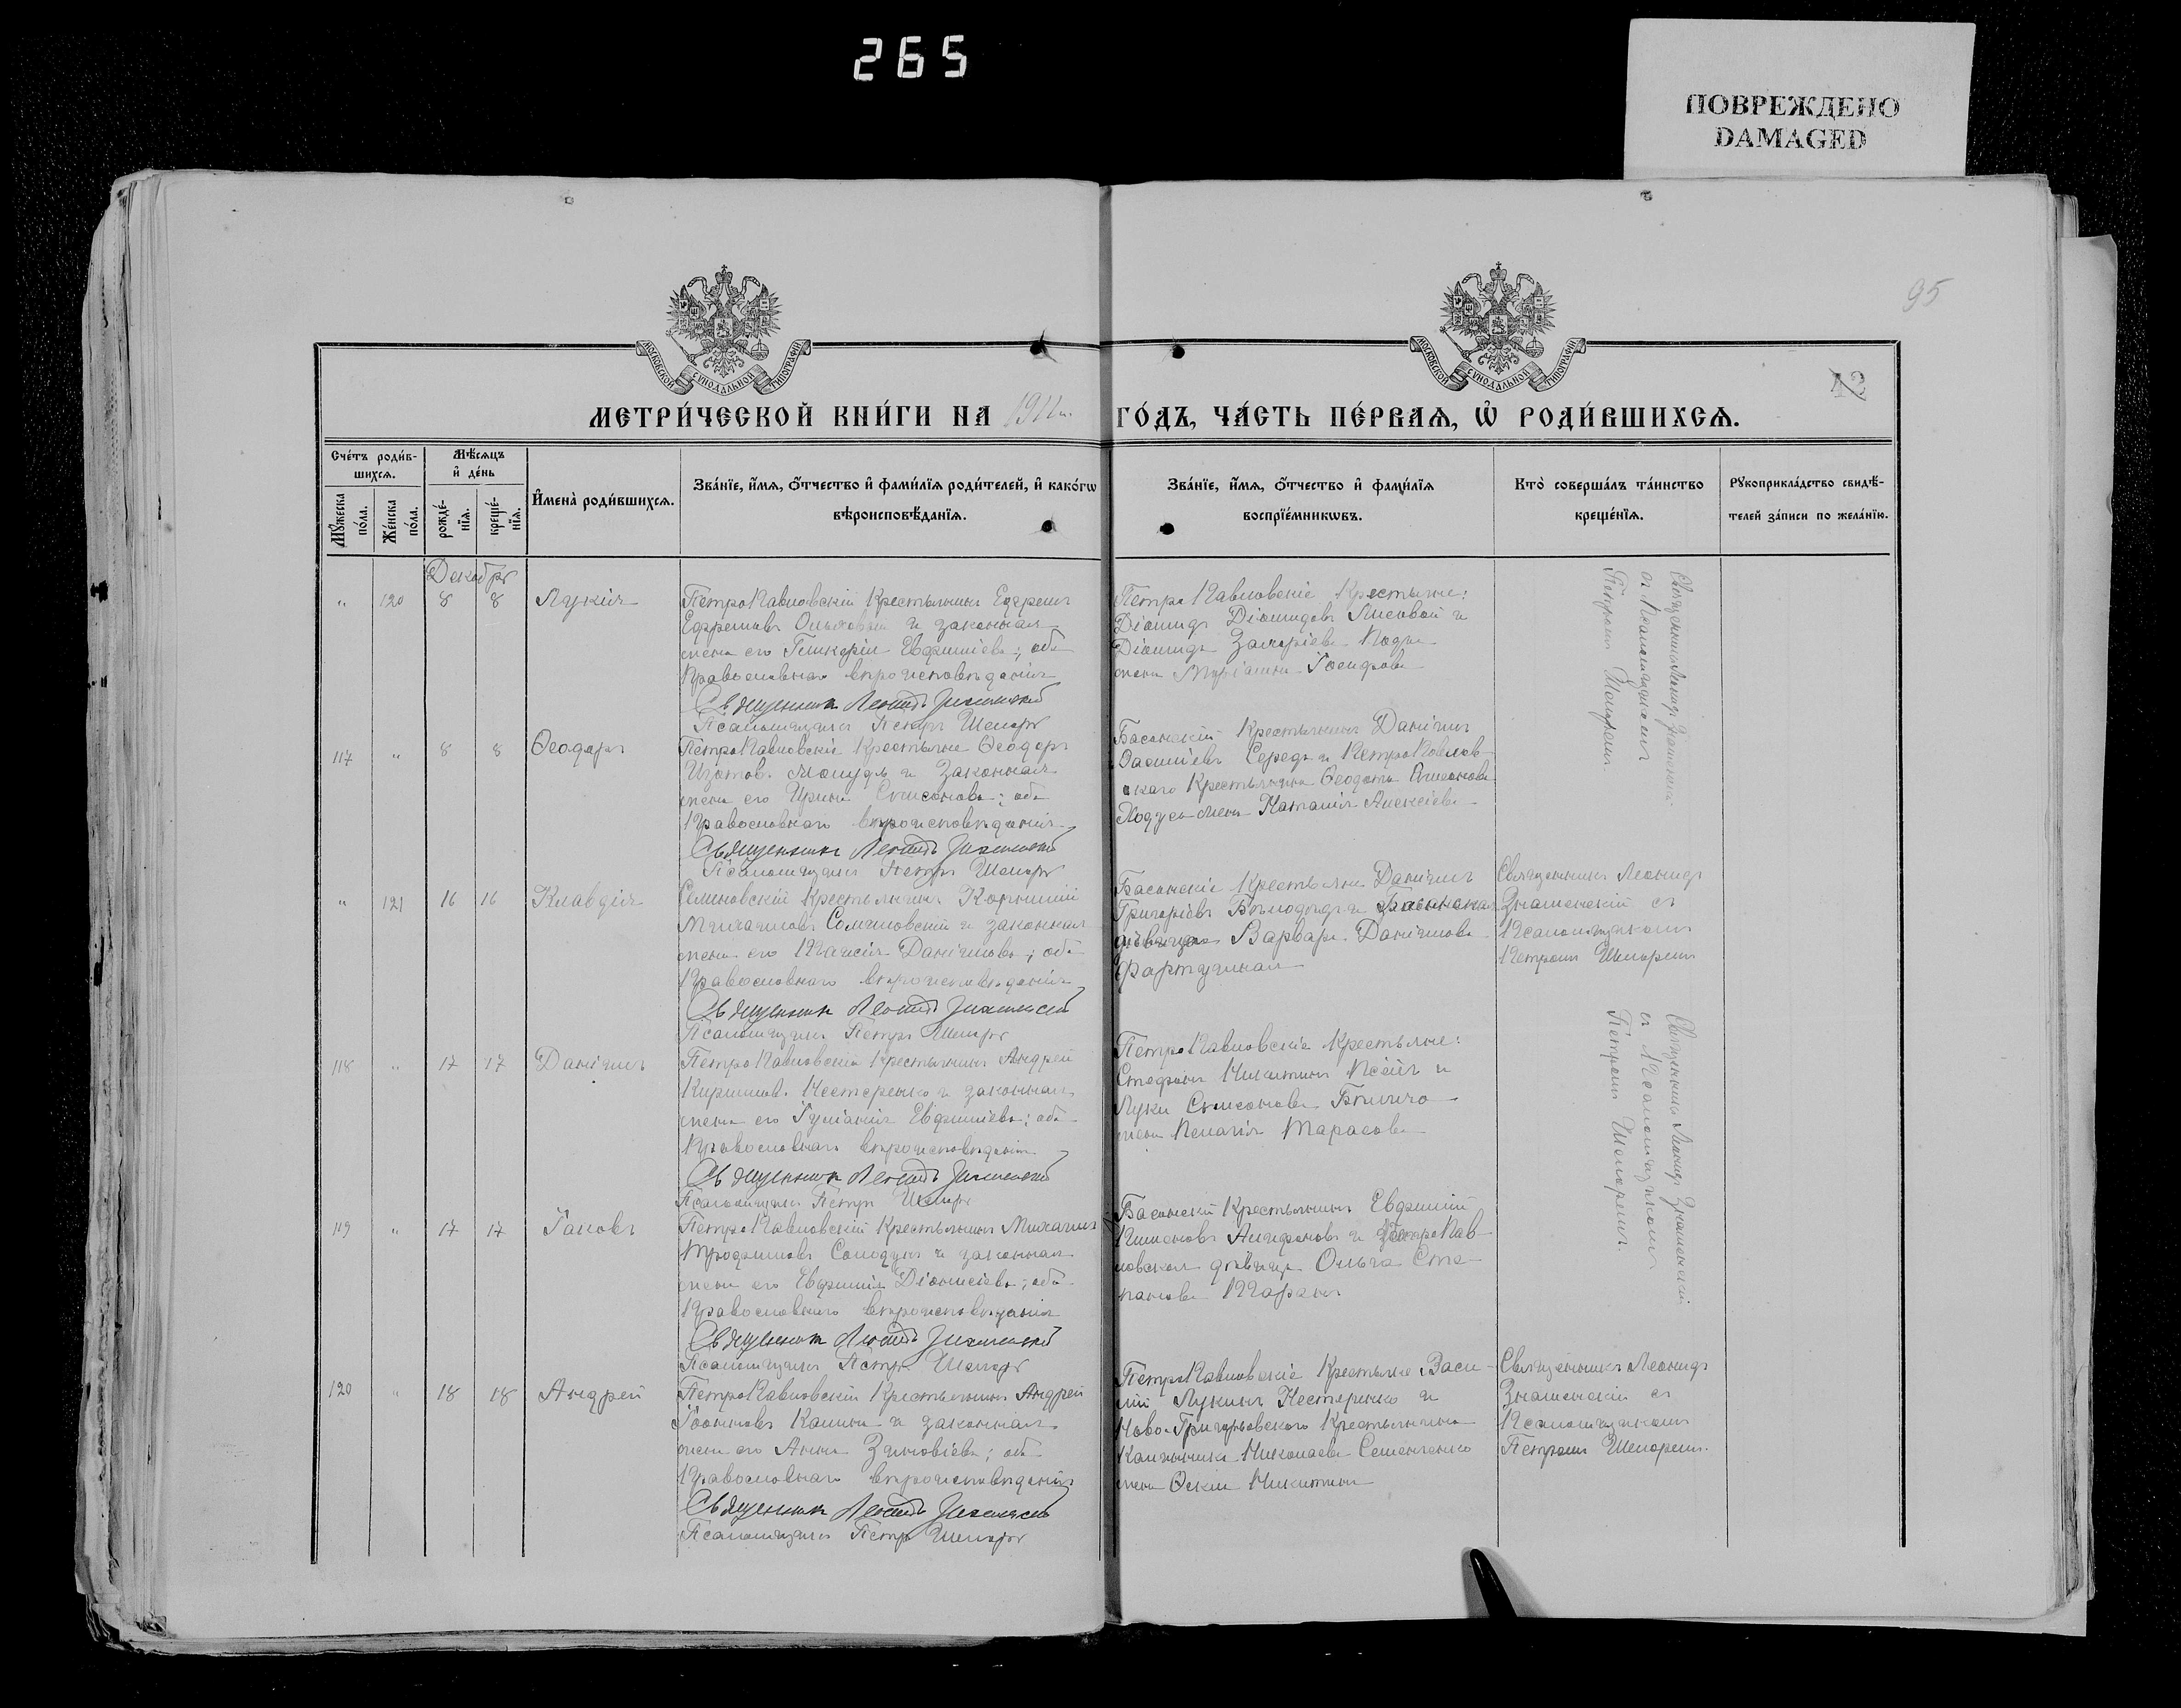 265
ПОВРЕЖДЕНО
DAMAGED
95
42
МОСКОВСКОЙ СѴНОДАЛЬНОЙ ТИПОГРАФІИ
МОСКОВСКОЙ СѴНОДАЛЬНОЙ ТИПОГРАФІИ
МЕТРИ́ЧЕСКОЙ КНИ́ГИ НА 1911 г. ГО́ДЪ, ЧА́СТЬ ПЕ́РВАѦ, Ѡ҆ РОДИ́ВШИХСѦ.
Сче́тъ роди́в-
шихсѧ.
Мꙋ́жеска по́ла.
Же́нска по́ла.
Мѣ́сѧцъ
и҆ де́нь
рожде́-
нїѧ.
креще́-
нїѧ.
И҆мена̀ роди́вшихсѧ.
Зва́нїе, и҆́мѧ, ѻ҆́тчество и҆ фами́лїѧ роди́телей, и҆ како́гѡ
вѣроисповѣ́данїѧ.
Зва́нїе, и҆́мѧ, ѻ҆́тчество и҆ фами́лїѧ
воспрїе́мникѡвъ.
Кто̀ соверша́лъ та́инство
креще́нїѧ.
Рꙋкоприкла́дство свидѣ́-
телей за́писи по жела́нїю.
Декабрь
„ 120 8 8 Лукія
ПетроПавловскій Крестьянинъ Ефремъ
Ефремовъ и законная
жена его Гликерія Евфиміева; оба
Православнаго вѣроисповѣданія
Священникъ Леонидъ Знаменскій
Псаломщикъ Петръ
ПетроПавловскіе Крестьяне:
Діомидъ Діомидовъ Лисовой и
Діомида Захаріева
жена Іосифова
Священникъ Леонидъ Знаменскій
съ Псаломщикомъ
Петромъ
117 „ 8 8 Ѳеодоръ
ПетроПавловскіе Крестьяне Ѳеодоръ
Изотов. и Законная
жена его Ирина Симеонова; оба
Православнаго вѣроисповѣданія
Священникъ Леонидъ Знаменскій
Псаломщикъ Петръ
Басанскій Крестьянинъ Даніилъ
Василіевъ Середа и ПетроПавлов-
скаго Крестьянина Ѳеодота Симеонова
жена Наталія Алексіева
„ 121 16 16 Клавдія
Крестьянинъ Корнилій
Михаиловъ и законная
жена его Даніилова; оба
Православнаго вѣроисповѣданія
Священникъ Леонидъ Знаменскій
Псаломщикъ Петръ
Басанскіе Крестьяне Даніилъ
Григоріевъ и
дѣвица Варвара Даніилова
Священникъ Леонидъ
Знаменскій съ
Псаломщикомъ
Петромъ
118 „ 17 17 Даніилъ
ПетроПавловскій Крестьянинъ Андрей
Кириллов. Нестеренко и законная
жена его Іуліанія Евфиміева; оба
Православнаго вѣроисповѣданія
Священникъ Леонидъ Знаменскій
Псаломщикъ Петръ
ПетроПавловскіе Крестьяне:
Стефанъ Никитинъ и
Луки Симеонова
жена Пелагія Тарасова
Священникъ Леонидъ Знаменскій
съ Псаломщикомъ
Петромъ
119 „ 17 17 Іаковъ
ПетроПавловскій Крестьянинъ Михаилъ
Трофимовъ Солодунъ и законная
жена его Евфимія Діонисіева; оба
Православнаго вѣроисповѣданія
Священникъ Леонидъ Знаменскій
Псаломщикъ Петръ
Басанскій Крестьянинъ Евфимій
и ПетроПав-
ловская дѣвица Ольга Сте-
панова
120 „ 18 18 Андрей
ПетроПавловскій Крестьянинъ Андрей
Іоанновъ и законная
жена его Анна Зиновіева; оба
Православнаго вѣроисповѣданія
Священникъ Леонидъ Знаменскій
Псаломщикъ Петръ
ПетроПавловскіе Крестьяне Васи-
лій Лукинъ Нестеренко и
Ново-Григорьевскаго Крестьянина
Каллиника Николаева Семененко
жена Ѳекла Никитина
Священникъ Леонидъ
Знаменскій съ
Псаломщикомъ
Петромъ